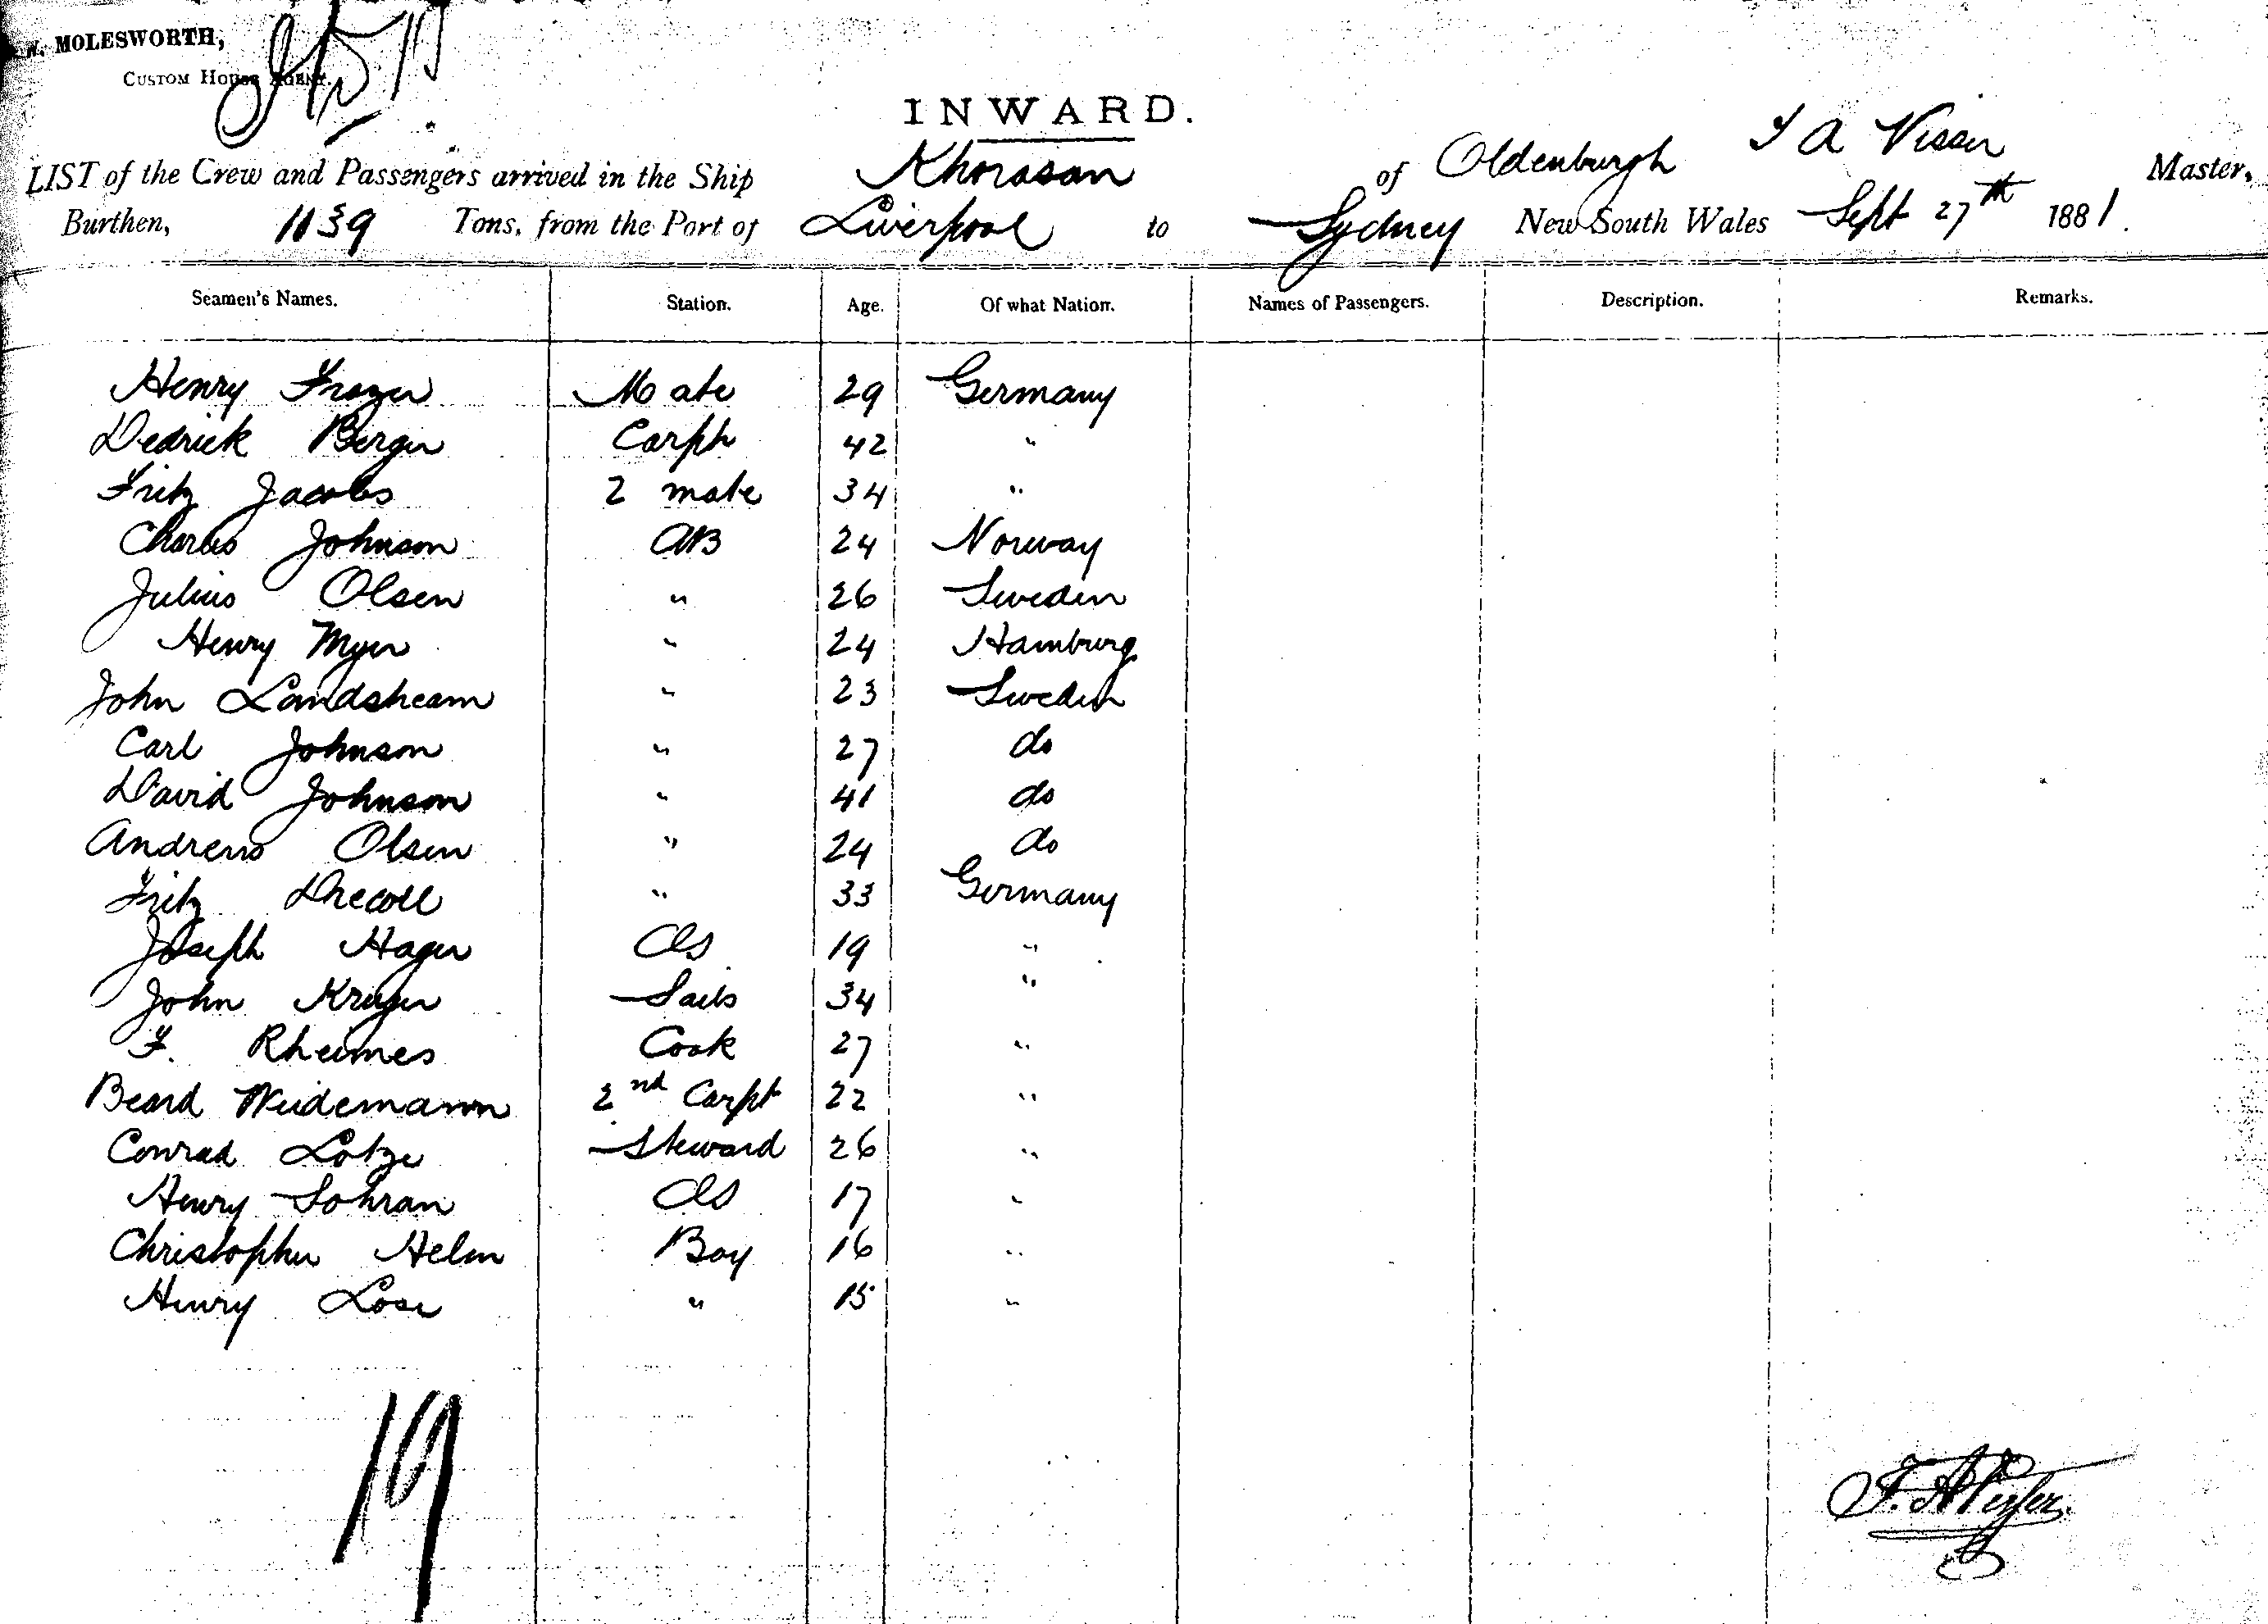 W. MOLESWORTH,
CUSTOM HOUSE AGENT.
INWARD.
LIST of the Crew and Passengers arrived in the Ship Khorasan of Oldenburgh J A Visser Master,
Burthen, 1139 Tons, from the Port of Liverpool to Sydney New South Wales Sept 27th 1881.
Seamen's Names. Station. Age. Of what Nation. Names of Passengers. Description. Remarks.
Henry Frazer Mate 29 Germany
Dedrick Berger Carptr 42 "
Fritz Jacobs 2 mate 34 "
Charles Johnson AB 24 Norway
Julius Olsen " 26 Sweden
Henry Myer " 24 Hamburg
John Landsheam " 23 Sweden
Carl Johnson " 27 do
David Johnson " 41 do
Andrew Olsen " 24 do
Fritz Drecoll " 33 Germany
Joseph Hager OS 19 "
John Kruger Sails 34 "
F. Rheimes Cook 27 "
Beard Weidemann 2nd Carpt 22 "
Conrad Lotze Steward 26 "
Henry Sohran OS 17 "
Christopher Helm Boy 16 "
Henry Lose " 15 "
19